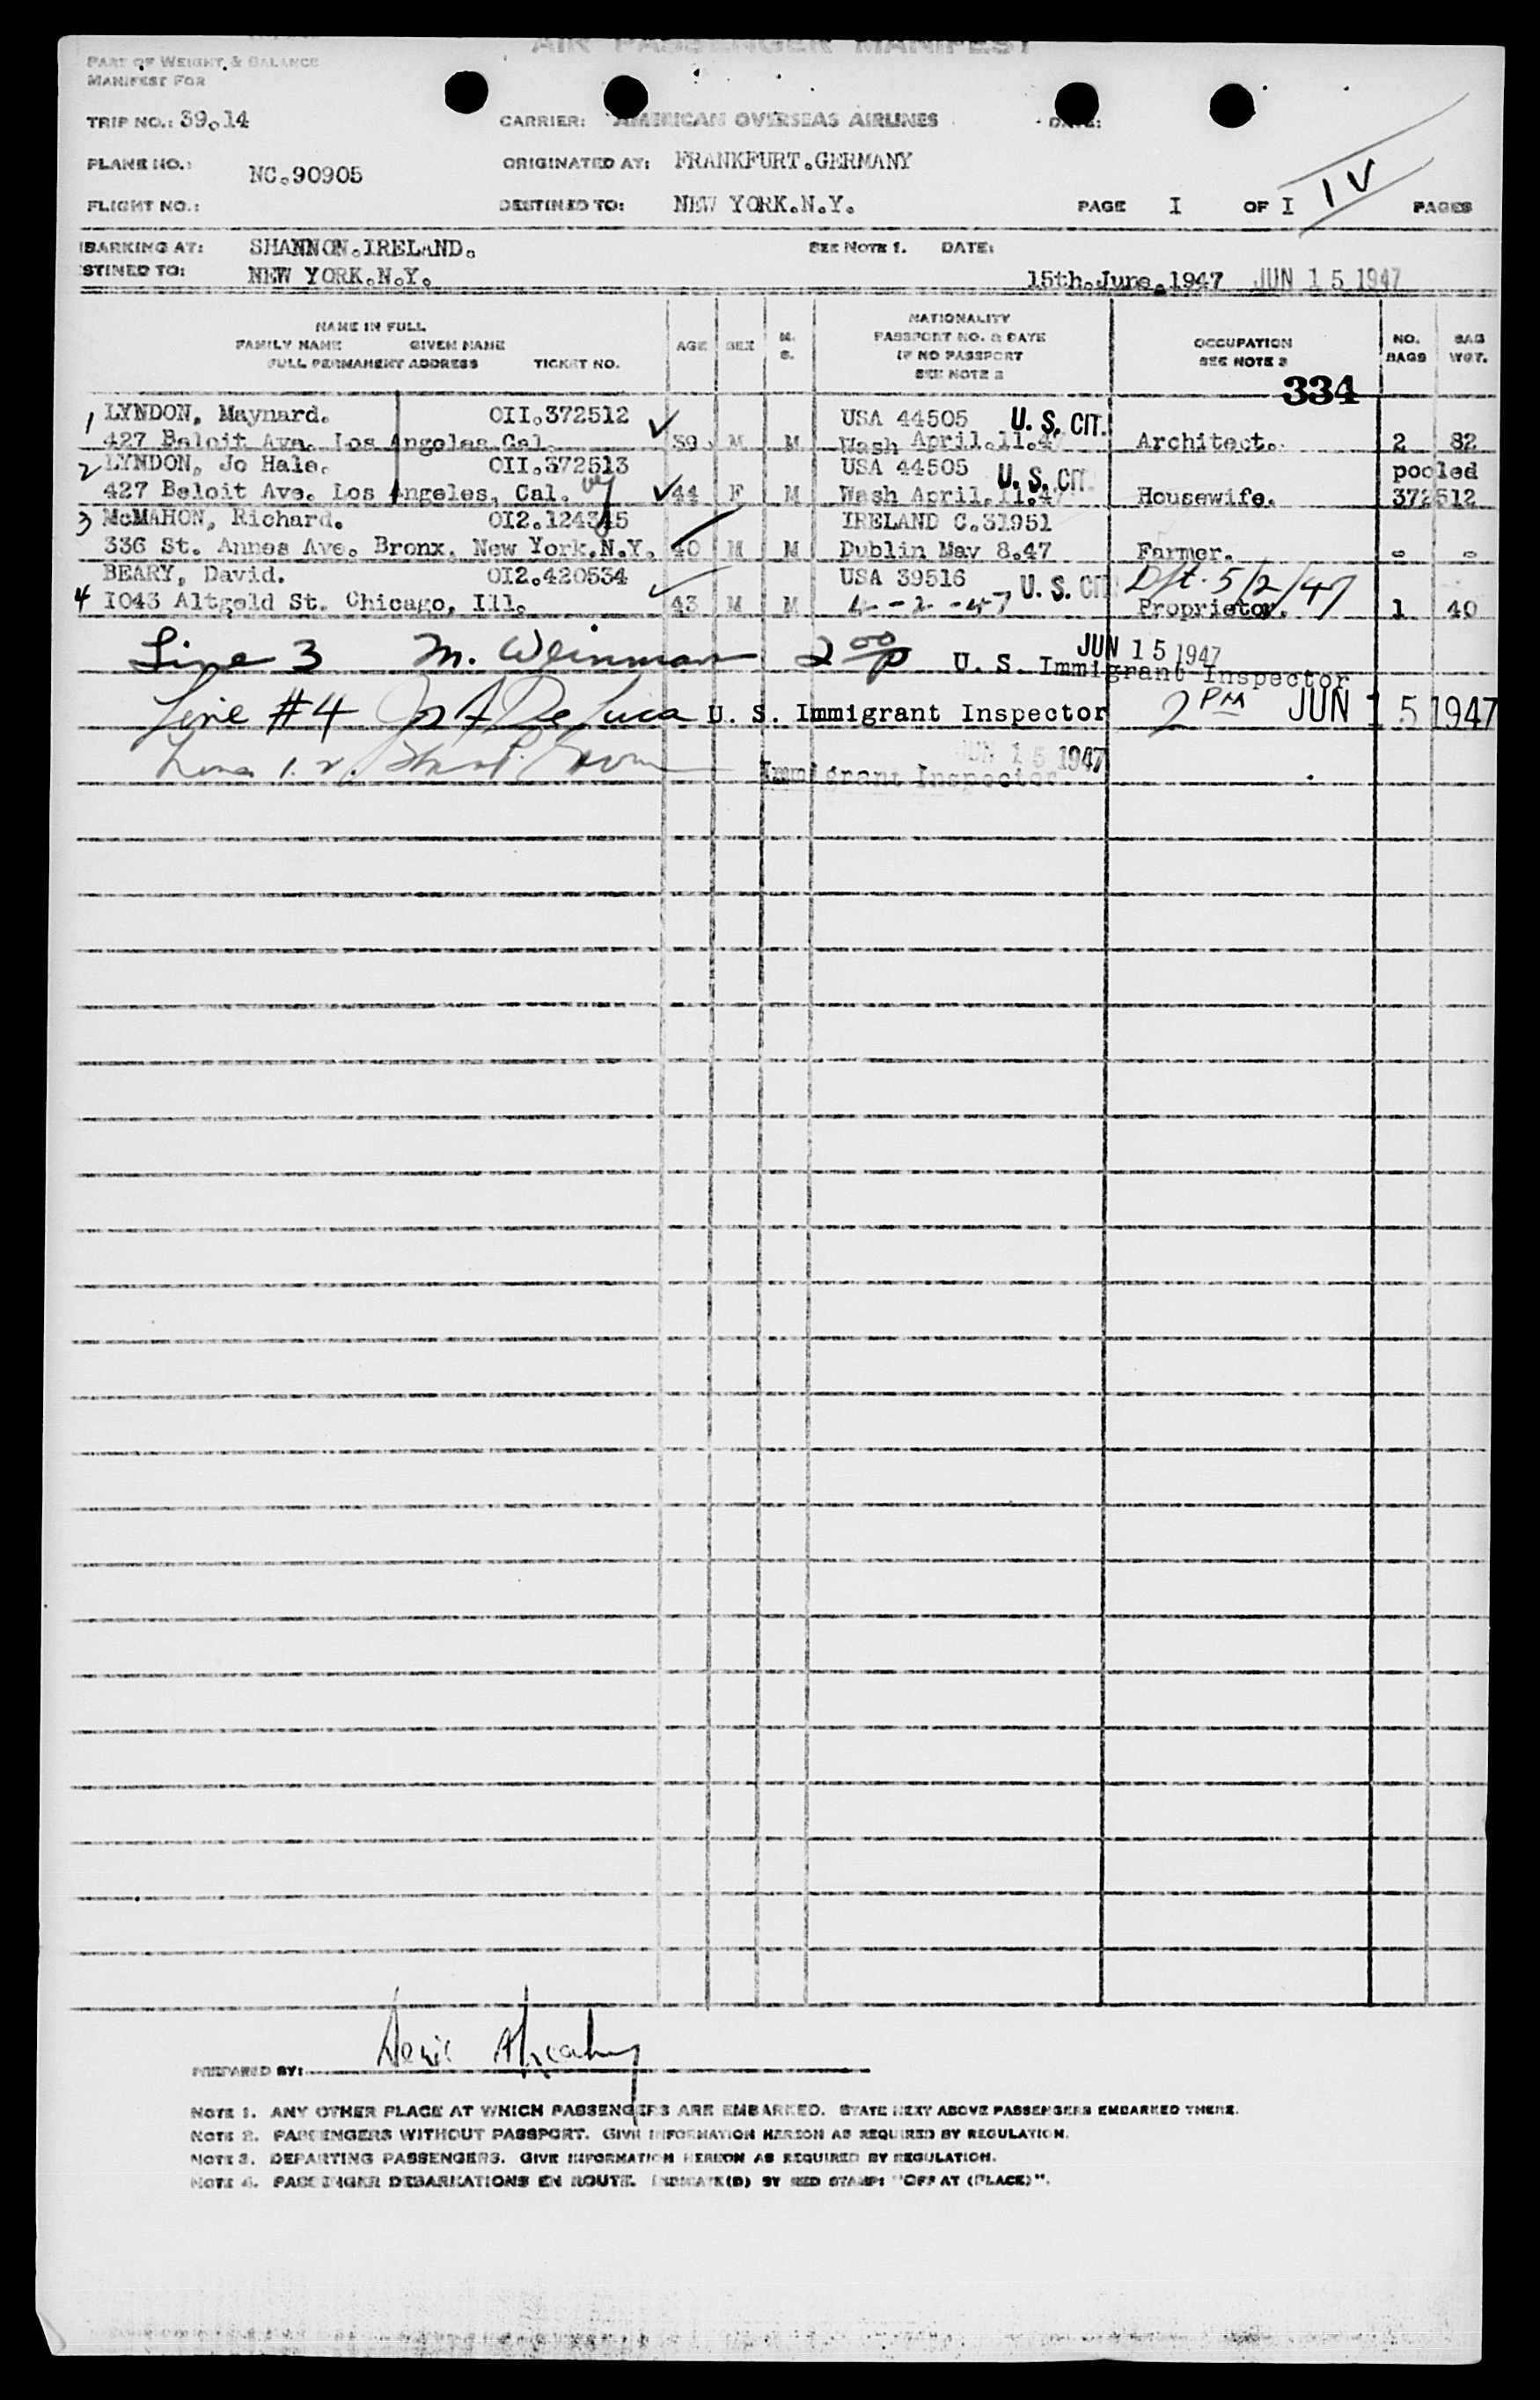 AIR PASSENGER MANIFEST
PART OF WEIGHT & BALANCE
MANIFEST FOR
TRIP NO.: 39.14 CARRIER: AMERICAN OVERSEAS AIRLINES DATE:
PLANE NO.: NC.90905 ORIGINATED AT: FRANKFURT.GERMANY
FLIGHT NO.: DESTINED TO: NEW YORK.N.Y. PAGE I OF I PAGES
BARKING AT: SHANNON.IRELAND. SEE NOTE 1. DATE:
STINED TO: NEW YORK.N.Y. 15th.June.1947 JUN 15 1947
NAME IN FULL
FAMILY NAME GIVEN NAME
FULL PERMANENT ADDRESS TICKET NO.
AGE SEX M. S.
NATIONALITY
PASSPORT NO. & DATE
IF NO PASSPORT
SEE NOTE 2
OCCUPATION
SEE NOTE 3
NO. BAGS
BAG WGT.
334
1 LYNDON, Maynard. OII.372512 USA 44505 U. S. CIT.
427 Beloit Ave. Los Angeles.Cal. 39 M M Wash April.11.4 Architect. 2 82
2 LYNDON, Jo Hale. OII.372513 USA 44505 U. S. CIT. pooled
427 Beloit Ave. Los Angeles, Cal. 44 F M Wash April.11.4 Housewife. 372512
3 McMAHON, Richard. OI2.124345 IRELAND C.31951
336 St. Annes Ave. Bronx. New York.N.Y. 40 M M Dublin May 8.47 Farmer. - -
BEARY, David. OI2.420534 USA 39516 U. S. CIT Dft. 5/2/47
4 1043 Altgeld St. Chicago, Ill. 43 M M 4-2-47 Proprietor. 1 40
Line 3 M. Weinman 2 00 p JUN 15 1947
U. S. Immigrant Inspector
Line #4 Jos A De Luca U. S. Immigrant Inspector 2 PM JUN 15 1947
Lines 1. 2. JUN 15 1947
Immigrant Inspector
PREPARED BY:
NOTE 1. ANY OTHER PLACE AT WHICH PASSENGERS ARE EMBARKED. STATE NEXT ABOVE PASSENGERS EMBARKED THERE.
NOTE 2. PASSENGERS WITHOUT PASSPORT. GIVE INFORMATION HEREON AS REQUIRED BY REGULATION.
NOTE 3. DEPARTING PASSENGERS. GIVE INFORMATION HEREON AS REQUIRED BY REGULATION.
NOTE 4. PASSENGER DEBARKATIONS EN ROUTE. INDICATE(D) BY RED STAMP: "OFF AT (PLACE)".